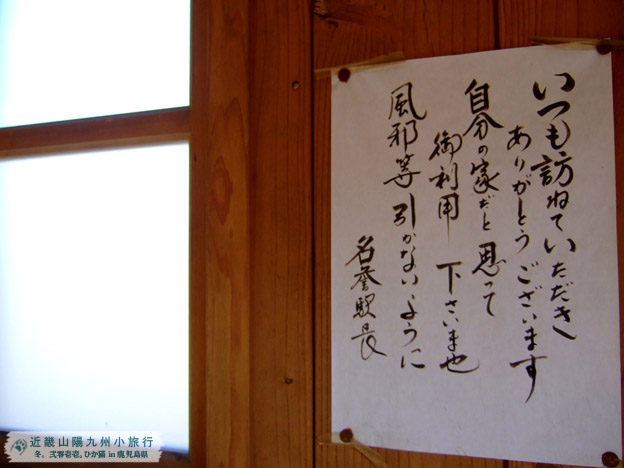 いつも訪ねていただき
ありがとうございます
自分の家だと思って
御利用下さいませ
風邪等引かないように
名誉駅長
近畿山陽九州小旅行
冬。弐零壱壱。ひか猫 in 鹿児島県